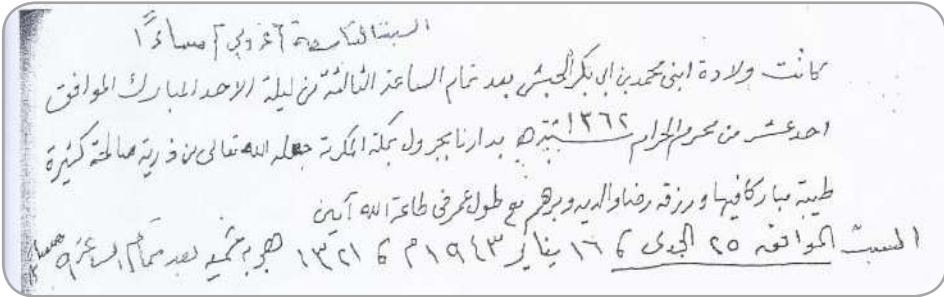 السبت التاسعة [غروبي] مساءً
كانت ولادة ابني محمد بن ابي بكر الحبشي بعد تمام الساعة الثالثة من ليلة الاحد المبارك الموافق
احد عشر من محرم الحرام سنة ١٣٦٢ هـ بدارنا بجرول بمكة المكرمة جعله الله تعالى من ذرية صالحة كثيرة
طيبة مباركا فيها ورزقه رضا والديه وبرهم مع طول عمر في طاعة الله آمين
السبت الموافق ٢٥ الجدي ٦ ١٦ يناير ١٩٤٣ م ٦ ١٣٢١ هجرية شمسية بعد تمام الساعة ٩ مساء